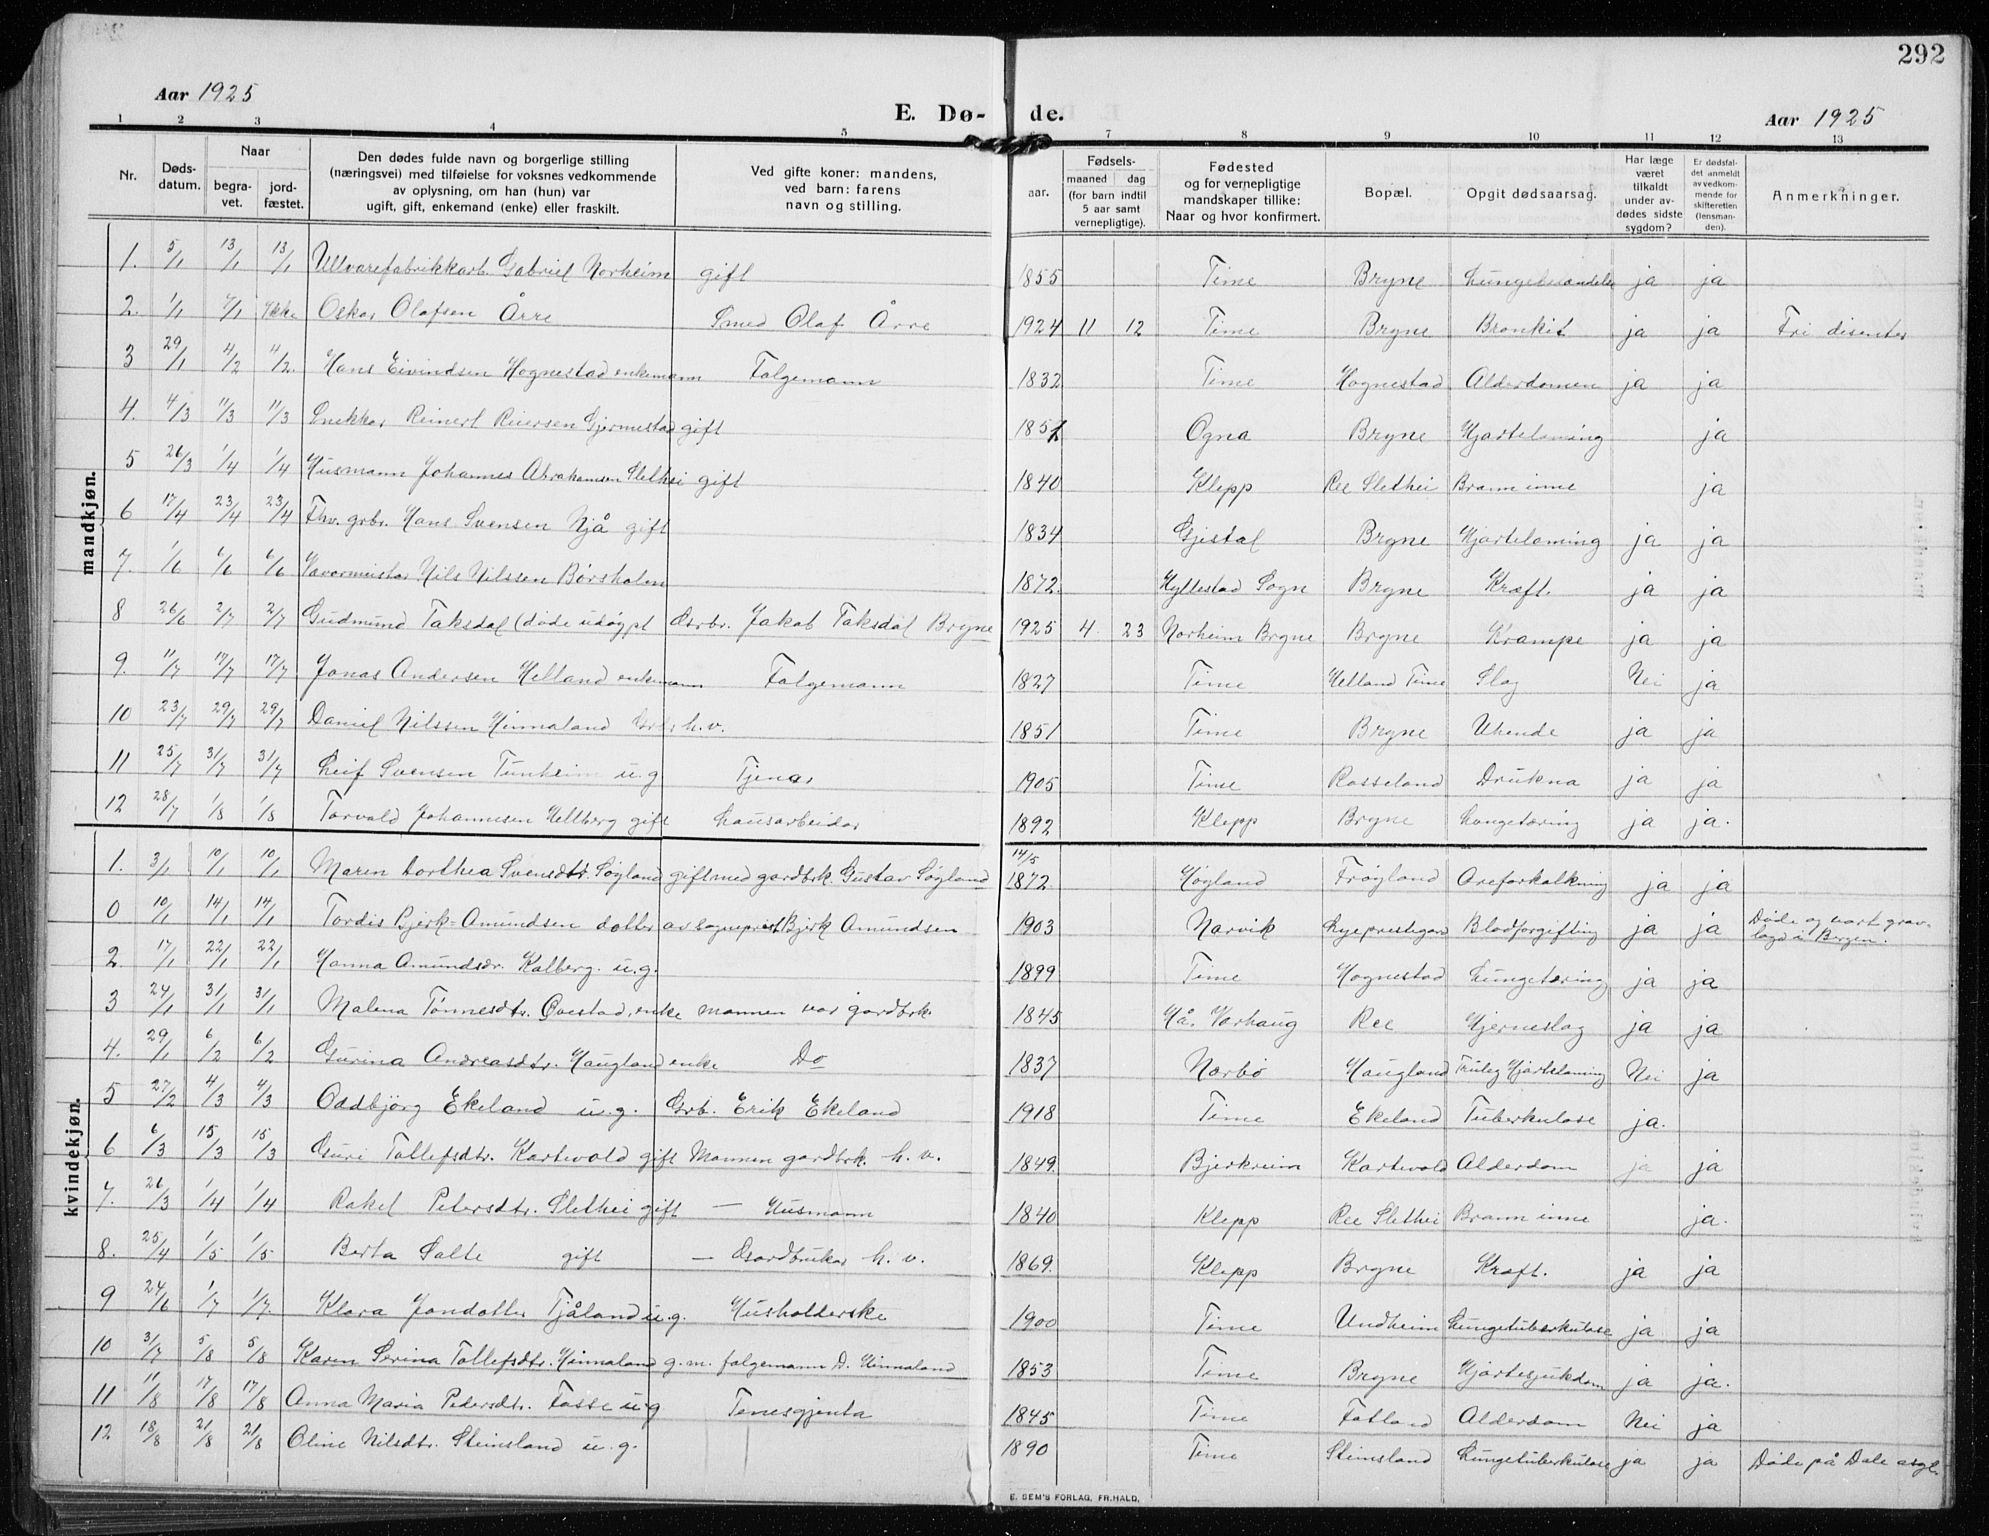 292
Aar 1925
E. Dø- de.
Aar 1925
1 2 3 4 5 6 7 8 9 10 11 12 13
Nr. Døds-datum. Naar begra-vet. jord-fæstet. Den dødes fulde navn og borgerlige stilling (næringsvei) med tilføielse for voksnes vedkommende av oplysning, om han (hun) var ugift, gift, enkemand (enke) eller fraskilt. Ved gifte koner: mandens, ved barn: farens navn og stilling. Fødsels- aar. maaned dag (for barn indtil 5 aar samt vernepligtige). Fødested og for vernepligtige mandskaper tillike: Naar og hvor konfirmert. Bopæl. Opgit dødsaarsag. Har læge været tilkaldt under av-dødes sidste sygdom? Er dødsfal-det anmeldt av vedkom-mende for skifteretten (lensman-den). Anmerkninger.
mandkjøn.
1. 5/1 13/1 13/1 Ullvarefabrikkarb. Gabriel Norheim gift 1855 Time Bryne Lungebetændelse ja ja
2. 1/1 7/1 Ikke Oskar Olafsen Årre Smed Olaf Årre 1924 11 12 Time Bryne Bronkit ja ja Fri disenter
3 29/1 4/2 4/2. Hans Eivindsen Hognestad enkemann Folgemann 1832 Time Hognestad Alderdomen ja ja
4. 4/3 11/3 11/3 Snekkar Reinert Reiersen Gjermestad gift 1851 Ogna Bryne Hjartelaming ja
5 26/3 1/4 1/4 Husmann Johannes Abrahamsen Slethei gift 1840 Klepp Ree Slethei Brann inne ja
6 17/4 23/4 23/4 Fhv. grbr. Hans Svensen Njå gift 1834 Gjestal Bryne Hjartelaming ja ja
7. 1/6 6/6 6/6 Vavarmeistar Nils Nilssen Børsholm 1872. Hyllestad Sogn Bryne Kræft. ja ja
8 26/6 2/7 2/7 Gudmund Taksdal (døde udøypt Grbr. Jakob Taksdal Bryne 1925 4. 23 Norheim Bryne Bryne Krampe ja ja
9. 11/7 17/7 17/7 Jonas Andersen Helland enkemann Folgemann 1827 Time Helland Time Slag Nei ja
10 23/7 29/7 29/7 Daniel Nilssen Hinnaland Grb. h.v. 1851 Time Bryne Uhende ja ja
11 25/7 31/7 31/7 Leif Svensen Tunheim u.g Tjenar 1905 Time Rosseland Drukna ja ja
12 28/7 1/8 1/8 Torvald Johannesen Hellberg gift Lausarbeidar 1892 Klepp Bryne Lungetæring ja ja.
kvindekjøn.
1. 3/1 10/1 10/1 Maren Dorthea Svensdtr. Søyland gift med gardbrk. Gustav Søyland 14/5 1872. Høyland Frøyland Areforkalkning ja ja
0 10/1 14/1 14/1 Tordis Bjerk-Amundsen dotter av sogneprest Bjerk Amundsen 1903 Narvik Lyeprestegard Blodforgifting ja ja Døde og vart grav-lagd i Bergen.
2. 17/1 22/1 22/1 Hanna Amundsdr. Kalberg. u.g. 1899 Time Hognestad Lungetæring ja ja
3 24/1 31/1 31/1 Malena Tønnesdtr. Qvestad, enke mannen var gardbrk. 1845 Hå, Varhaug Ree Hjerneslag ja ja
4. 29/1 6/2 6/2 Gurina Andreasdtr. Haugland enke Do 1837 Nærbø Haugland Truleg Hjartelaming Nei ja
5 27/2 4/3 4/3 Oddbjørg Ekeland u.g. Grb. Erik Ekeland 1918 Time Ekeland Tuberkulose ja.
6 6/3 15/3 15/3 Guri Tollefsdtr. Kartevold gift Mannen gardbrk. h. v. 1849. Bjerkreim Kartevold Alderdom ja ja
7. 26/3 1/4 1/4 Rakel Petersdtr. Slethei gift — Husmann 1840 Klepp Ree Slethei Brann inne ja.
8. 25/4 1/5 1/5 Berta Salte gift — Gardbrukar h. v. 1869. Klepp Bryne Kræft. ja ja
9 24/6 1/7 1/7. Klara Jondotter Tjåland u.g. Husholderske 1900 Time Undheim Lungetuberkulose ja ja
10 31/7 5/8 5/8 Karen Serina Tollefsdtr. Hinnaland g. m. folgemann D. Hinnaland 1853 Time Bryne Hjartesjukdom ja ja.
11 11/8 17/8 17/8 Anna Maria Pedersdtr. Fosse u.g Tenesgjenta 1845 Time Fotland Alderdom Nei ja
12 18/8 21/8 21/8 Oline Nilsdtr. Steinsland u.g. 1890 Time Steinsland Lungetuberkulose ja ja Døde på Dale asyl.
E. SEM'S FORLAG, FR.HALD.